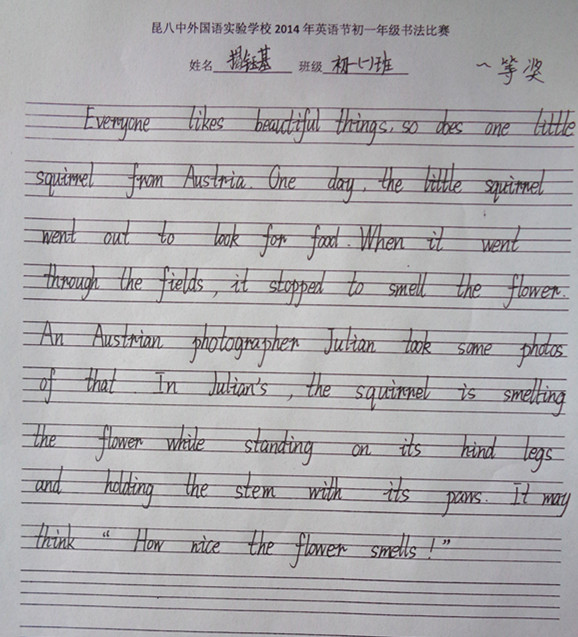 昆八中外国语实验学校 2014 年英语节初一年级书法比赛
姓名 杨钰基 班级 初一(1)班
一等奖
Everyone likes beautiful things, so does one little
squirrel from Austria. One day, the little squirrel
went out to look for food. When it went
through the fields, it stopped to smell the flower.
An Austrian photographer Julian took some photos
of that. In Julian's, the squirrel is smelting
the flower while standing on its hind legs
and holding the stem with its paws. It may
think " How nice the flower smells ! "